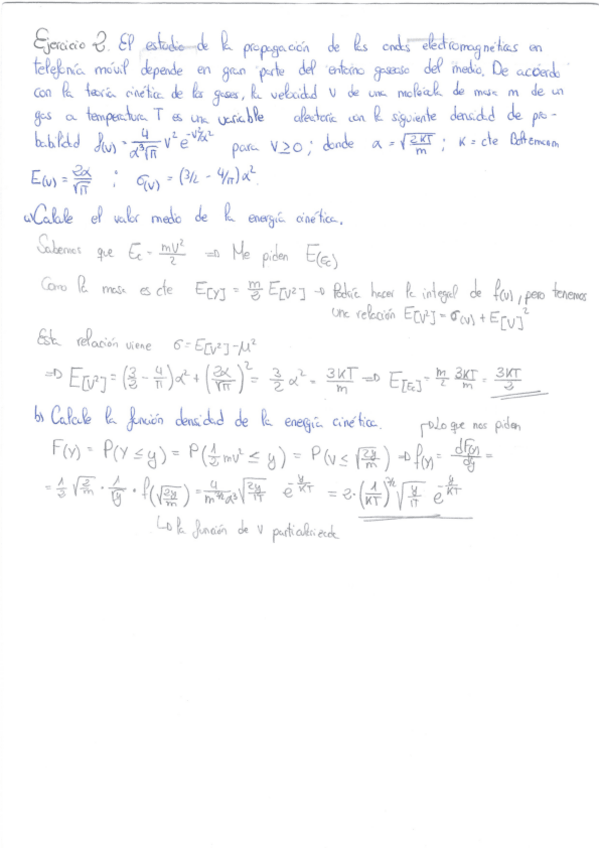 Ejercicio 2. El estudio de la propagación de las ondas electromagnéticas en
telefonía móvil depende en gran parte del entorno gaseoso del medio. De acuerdo
con la teoría cinética de los gases, la velocidad V de una molécula de masa m de un
gas a temperatura T es una variable aleatoria con la siguiente densidad de pro-
babilidad f(v) = 4/(α³√π) v² e^(-v²/α²) para V ≥ 0; donde α = √(2KT/m); K = cte Boltzmann
E(v) = 2α/√π ; σ(v) = (3/2 - 4/π)α².
a) Calcule el valor medio de la energía cinética.
Sabemos que Ec = mV²/2 ⇒ Me piden E(Ec)
Como la masa es cte E[Y] = m/2 E[V²] → Podría hacer la integral de f(v), pero tenemos
una relación E[V²] = σ(v) + E[V]²
Esta relación viene σ = E[V²] - μ²
⇒ E[V²] = (3/2 - 4/π)α² + (2α/√π)² = 3/2 α² = 3KT/m ⇒ E[Ec] = m/2 3KT/m = 3KT/3
b) Calcule la función densidad de la energía cinética. → Lo que nos piden
F(y) = P(Y ≤ y) = P(1/2 mv² ≤ y) = P(v ≤ √(2y/m)) ⇒ f(y) = dF(y)/dy =
= 1/2 √(2/m) · 1/√y · f(√(2y/m)) = 4/(m^(3/2) α³) √(2y/π) e^(-y/KT) = 2·(1/KT)^(3/2) √(y/π) e^(-y/KT)
↳ la función de v particularizada